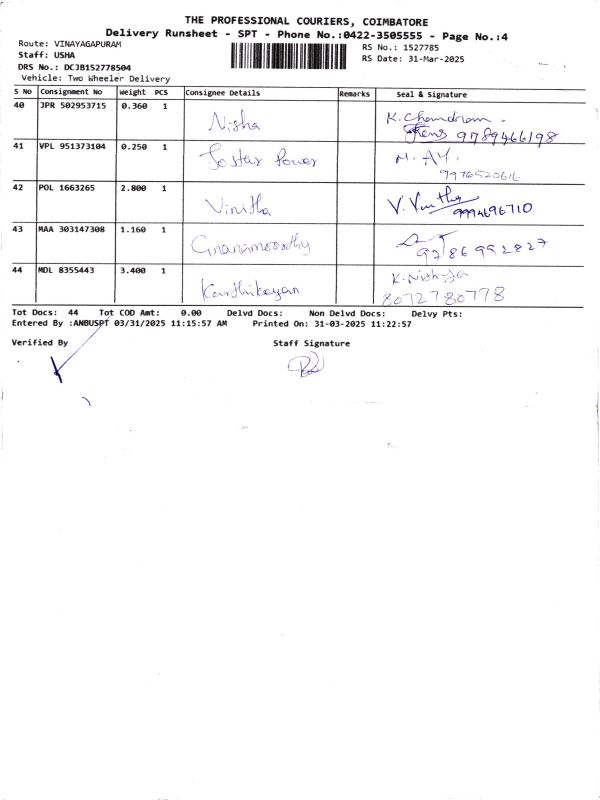 THE PROFESSIONAL COURIERS, COIMBATORE
Delivery Runsheet - SPT - Phone No.:0422-3505555 - Page No.:4
Route: VINAYAGAPURAM
Staff: USHA
DRS No.: DCJB152778504
Vehicle: Two Wheeler Delivery
RS No.: 1527785
RS Date: 31-Mar-2025
S No Consignment No Weight PCS Consignee Details Remarks Seal & Signature
40 JPR 502953715 0.360 1 Nisha K. Chandram. 9789466198
41 VPL 951373104 0.250 1 Power M. AY. 9976520616
42 POL 1663265 2.800 1 Vinitha V. 9994696710
43 MAA 303147308 1.160 1 Gnanamoorthy 9786992827
44 MDL 8355443 3.400 1 Karthikeyan K. 8072780778
Tot Docs: 44 Tot COD Amt: 0.00 Delvd Docs: Non Delvd Docs: Delvy Pts:
Entered By :ANBUSPT 03/31/2025 11:15:57 AM Printed On: 31-03-2025 11:22:57
Verified By Staff Signature